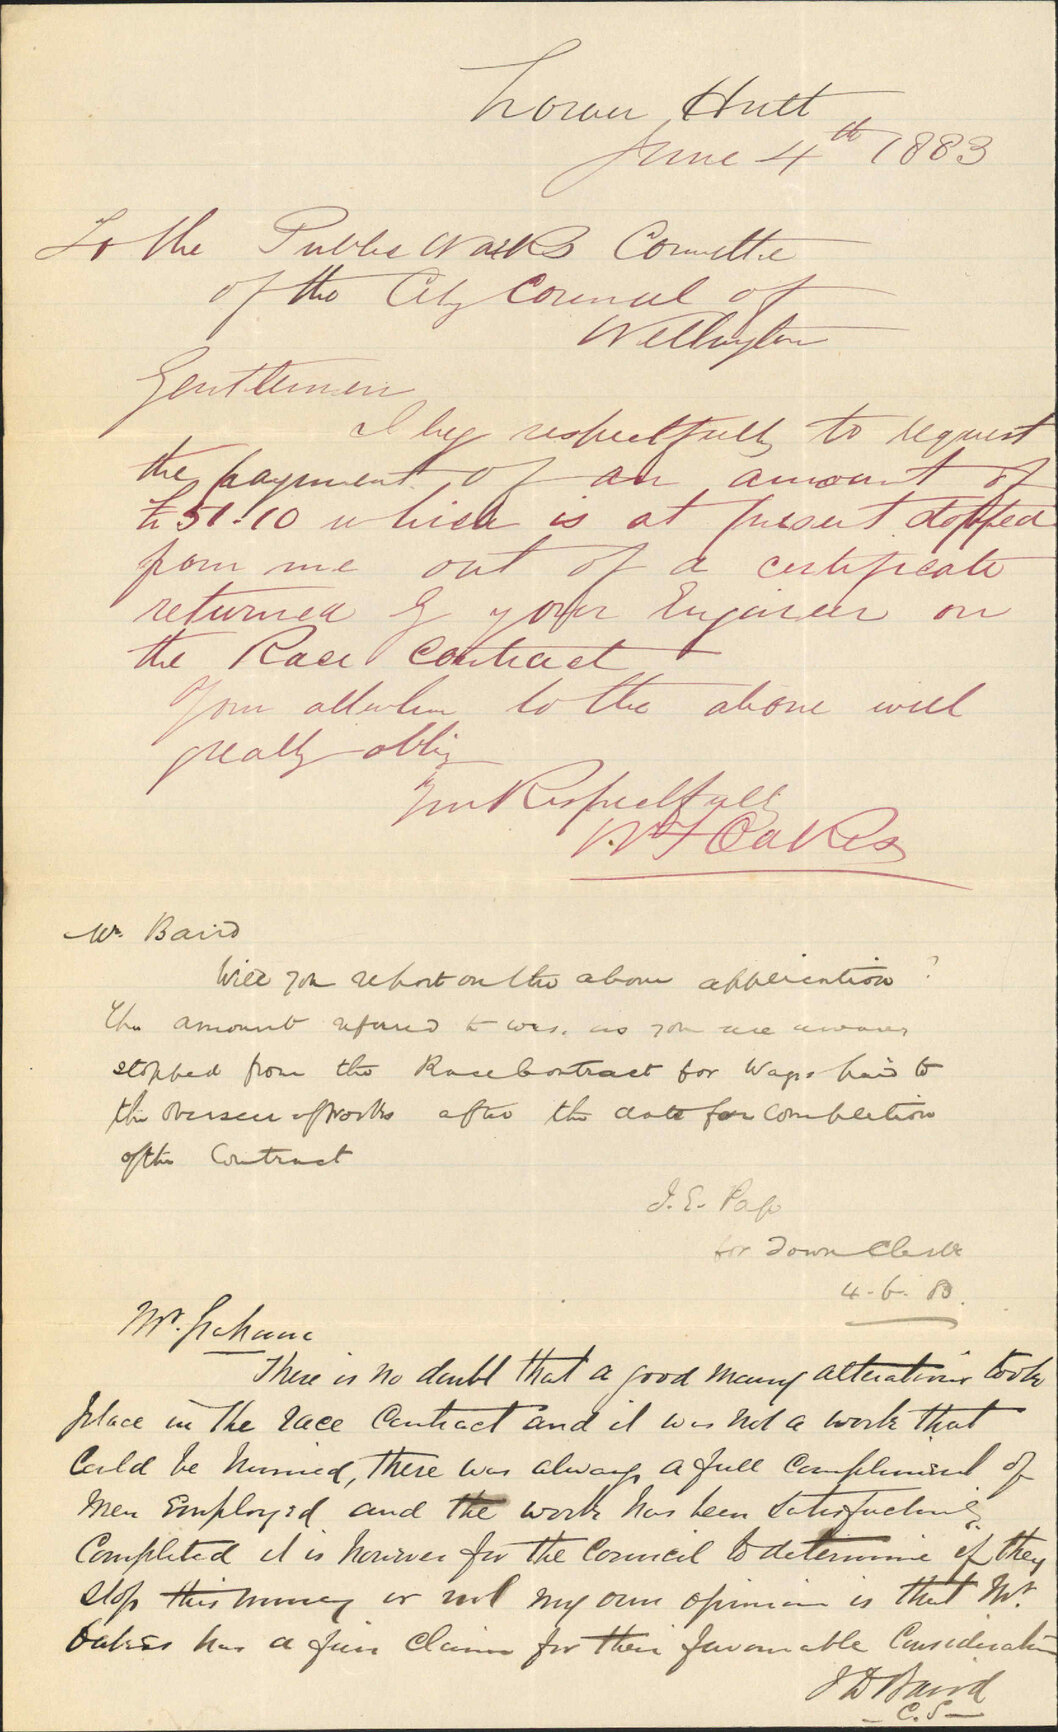 Lower Hutt
June 4th 1883
To the Public Works Committe
of the City Council of
Wellington
Gentlemen
I beg respectfully to request
the payment of an amount of
£51.10 which is at present stopped
from me out of a certificate
returned by your Engineer on
the Race Contract
Your attention to the above will
greatly oblige
Your Respectfully
Wm F Oakes
Mr. Baird
Will you report on the above application?
The amount referred to was, as you are aware,
stopped from the Race Contract for Wages paid to
the Overseer of Works after the date for Completion
of the Contract
J. E. Page
for Town Clerk
4.6.83.
Mr. Graham
There is no doubt that a good many alterations took
place in the race Contract and it was not a work that
Could be hurried, there was always a full Compliment of
Men Employed and the work has been Satisfactorily
Completed it is however for the Council to determine if they
stop this money or not my own opinion is that Mr.
Oakes has a fair Claim for their favourable Consideration
J D Baird
C.S